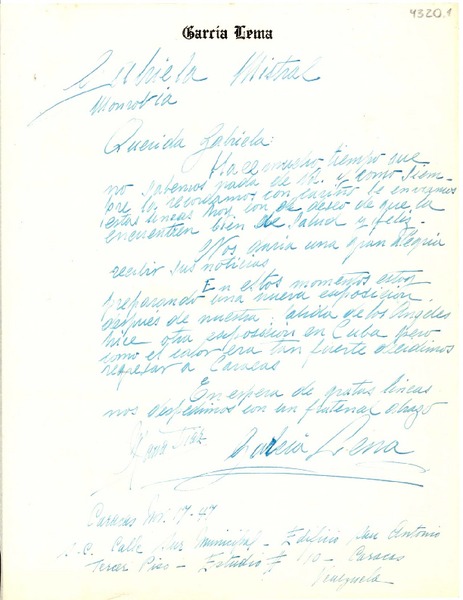 4320.1
García Lema
Gabriela Mistral
Monrovia
Querida Gabriela:
Hace mucho tiempo que
no sabemos nada de Ud. y como siem-
pre la recordamos con cariño le enviamos
estas lineas hoy con el deseo de que la
encuentren bien de salud y feliz.
Nos daria una gran alegria
recibir sus noticias
En estos momentos estoy
preparando una nueva exposicion.
despues de nuestra salida de los Angeles
hice otra exposicion en Cuba pero
como el calor era tan fuerte decidimos
regresar a Caracas
En espera de gratas lineas
nos despedimos con un fraternal abrazo
García Lema
Caracas 17-47
S.C. Calle Sur Municipal - Edificio San Antonio
Tercer Piso - Estudio - Caracas
Venezuela